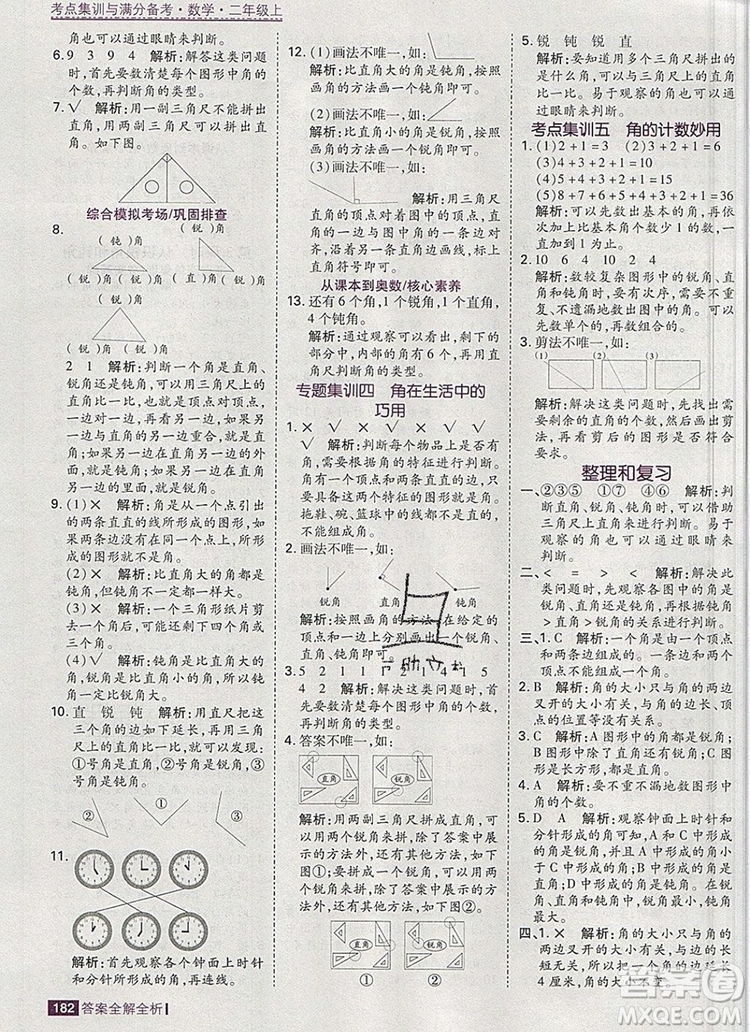 考点集训与满分备考·数学·二年级上
角也可以通过眼睛来判断。
6. 9 3 9 4 解析:解答这类问题时,首先要数清楚每个图形中角的个数,再判断角的类型。
7. √ 解析:用一副三角尺不能拼出直角,用两副三角尺可以拼出直角。
综合模拟考场/巩固排查
8. (钝)角
(锐)角 (锐)角
(直)角
(锐)角 (锐)角
2 1 解析:判断一个角是直角、
锐角还是钝角,可以用三角尺上的
直角来比一比,顶点对顶点,角的
一边对一边,如果另一边与被测角
的另外一边重合,就是直角;如果
另外一边在被测角的里面,被测角
就是钝角;如果另外一边在被测角
另外一边的里面,就是锐角。
9. (1)× 解析:角是从一个点引出
的两条直直的线所形成的图形,如
果两条边没在一个点引出,所形
成的图形就不是角。
(2)× 解析:比直角大的角都是
钝角,但钝角不一定都一样大。
(3)× 解析:一个三角形纸片剪
去一个角后,可能剩下4个角。
(4)√ 解析:比直角小的角是锐
角,锐角是比直角小的角。
10. 直 锐 钝 解析:可以把这
三个角的边如下延长,再用三角
尺上的直角比一比,就可以发现:
①号角是直角,②号角是锐角,
③号角是钝角。
① ② ③
11.
解析:先观察各个钟面上时针和
分针所形成的角,再作判断。
182 答案全解全析
12. (1)画法不唯一,如:
解析:比直角小的角是锐角,按照
画角的方法画一个锐角即可。
(2)画法不唯一,如:
解析:比直角大的角是钝角,按照
画角的方法画一个钝角即可。
(3)画法不唯一,如:
解析:用三角尺
直角的顶点对着角的顶点,直角
的一边与图中的一条边对着,沿
直角的另外一条边画线,最后标
直角符号即可。
从课本到奥数/核心素养
13. 还有6个角,1个锐角,1个直角,
4个钝角。
解析:通过观察可以看出,剩下的
部分中,内部的角有6个,再运用
直尺判断角的类型。
专题集训四 角在生活中的
巧用
1. × √ √ × √ ×
√ 解析:判断每个物品上是否
有角,可以根据角的特征进行判断。
角的特征是一个顶点、两条边,只
要具备这两个特征就可以判断。
拖鞋、碗、篮球中的线都不是直直
的,不能组成角。
2. 画法不唯一,如:
锐角 直角 钝角
解析:按照画角的方法,在给定的
顶点和一边上分别画出一个锐角、
直角和钝角即可。
3. 5 2 1 2 1 4 1 2 1
4 2 解析:解决这类问题时,首
先要数清楚每个图形中有几个角,
再判断角的类型。
4. 答案不唯一,如:
直角 锐角
① ②
解析:用两副三角尺拼成直角时,
可以用锐角来拼,除了答案中展示
的方法外,还可以用其他方法,如
图①;要拼成锐角,可以用两副三
角尺的锐角来拼,除了答案中展示
的方法外,还可以用其他方法,如
图②。
直角 锐角
① ②
5. 锐 钝 锐 直
解析:要知道每个三角尺拼出的
是什么角,可以利用直角去比一
比。易于观察的角也可以通过眼
睛来判断。
考点集训五 角的计数妙用
1. (1)2+1=3 (2)2+1=3
(3)4+3+2+1=10
(4)5+4+3+2+1=15
(5)8+7+6+5+4+3+2+1=36
解析:可以先数出基本的角,再依次
加比基本角个数少1的数,一直加
到1。
2. 10 6 4 2 4 2
解析:数较复杂图形中的锐角、直
角、钝角时,要有次序,需要不重
复、不遗漏地数出图中的角,可以
先数单个的,再数组合的。
3. 剪法不唯一,如:
(1) (2) (3)
解析:在解决这类问题时,根据需
要剩余的角的个数确定怎样剪的方
法,再看剪后的图形是否符合要
求。
整理和复习
一、②③⑤ ①⑦ ④⑥ 解析:判
断直角、锐角、钝角时,可以借助
三角尺上直角来进行判断。易于
观察的也可以通过眼睛来判断。
二、< = > < > 解析:解决此
类问题时,先观察各图中的角是
锐角、直角还是钝角,再根据钝角
>直角>锐角的关系作出判断。
三、1. C 解析:一个角是由一个顶
点和两条边组成的。一条线段和
两个端点不能组成角。
2. B A 解析:角的大小只与角的两边
叉开的大小有关,与边的长短、顶
点的位置和方向无关。
3. A 解析:方形的角都是锐角;B
图形中的角都是直角;C图形中
的角有直角,有锐角。
4. B 解析:不重复不遗漏地数出图形
中角的个数即可。
5. D A 解析:观察钟面上时针和
分针形成的角可知,A和C形成
的角是锐角,B形成的角是直角,
D形成的角是钝角。钝角大于直
角,直角大于锐角,且A形成的锐
角比C形成的锐角小,所以D形
成的角是钝角,钝角最大,锐角
最小。
四、1. × 解析:角的大小只与角的
两边叉开的大小有关系,与角的
边的长短没有关系,角的边长增
4厘米,角的大小不变。